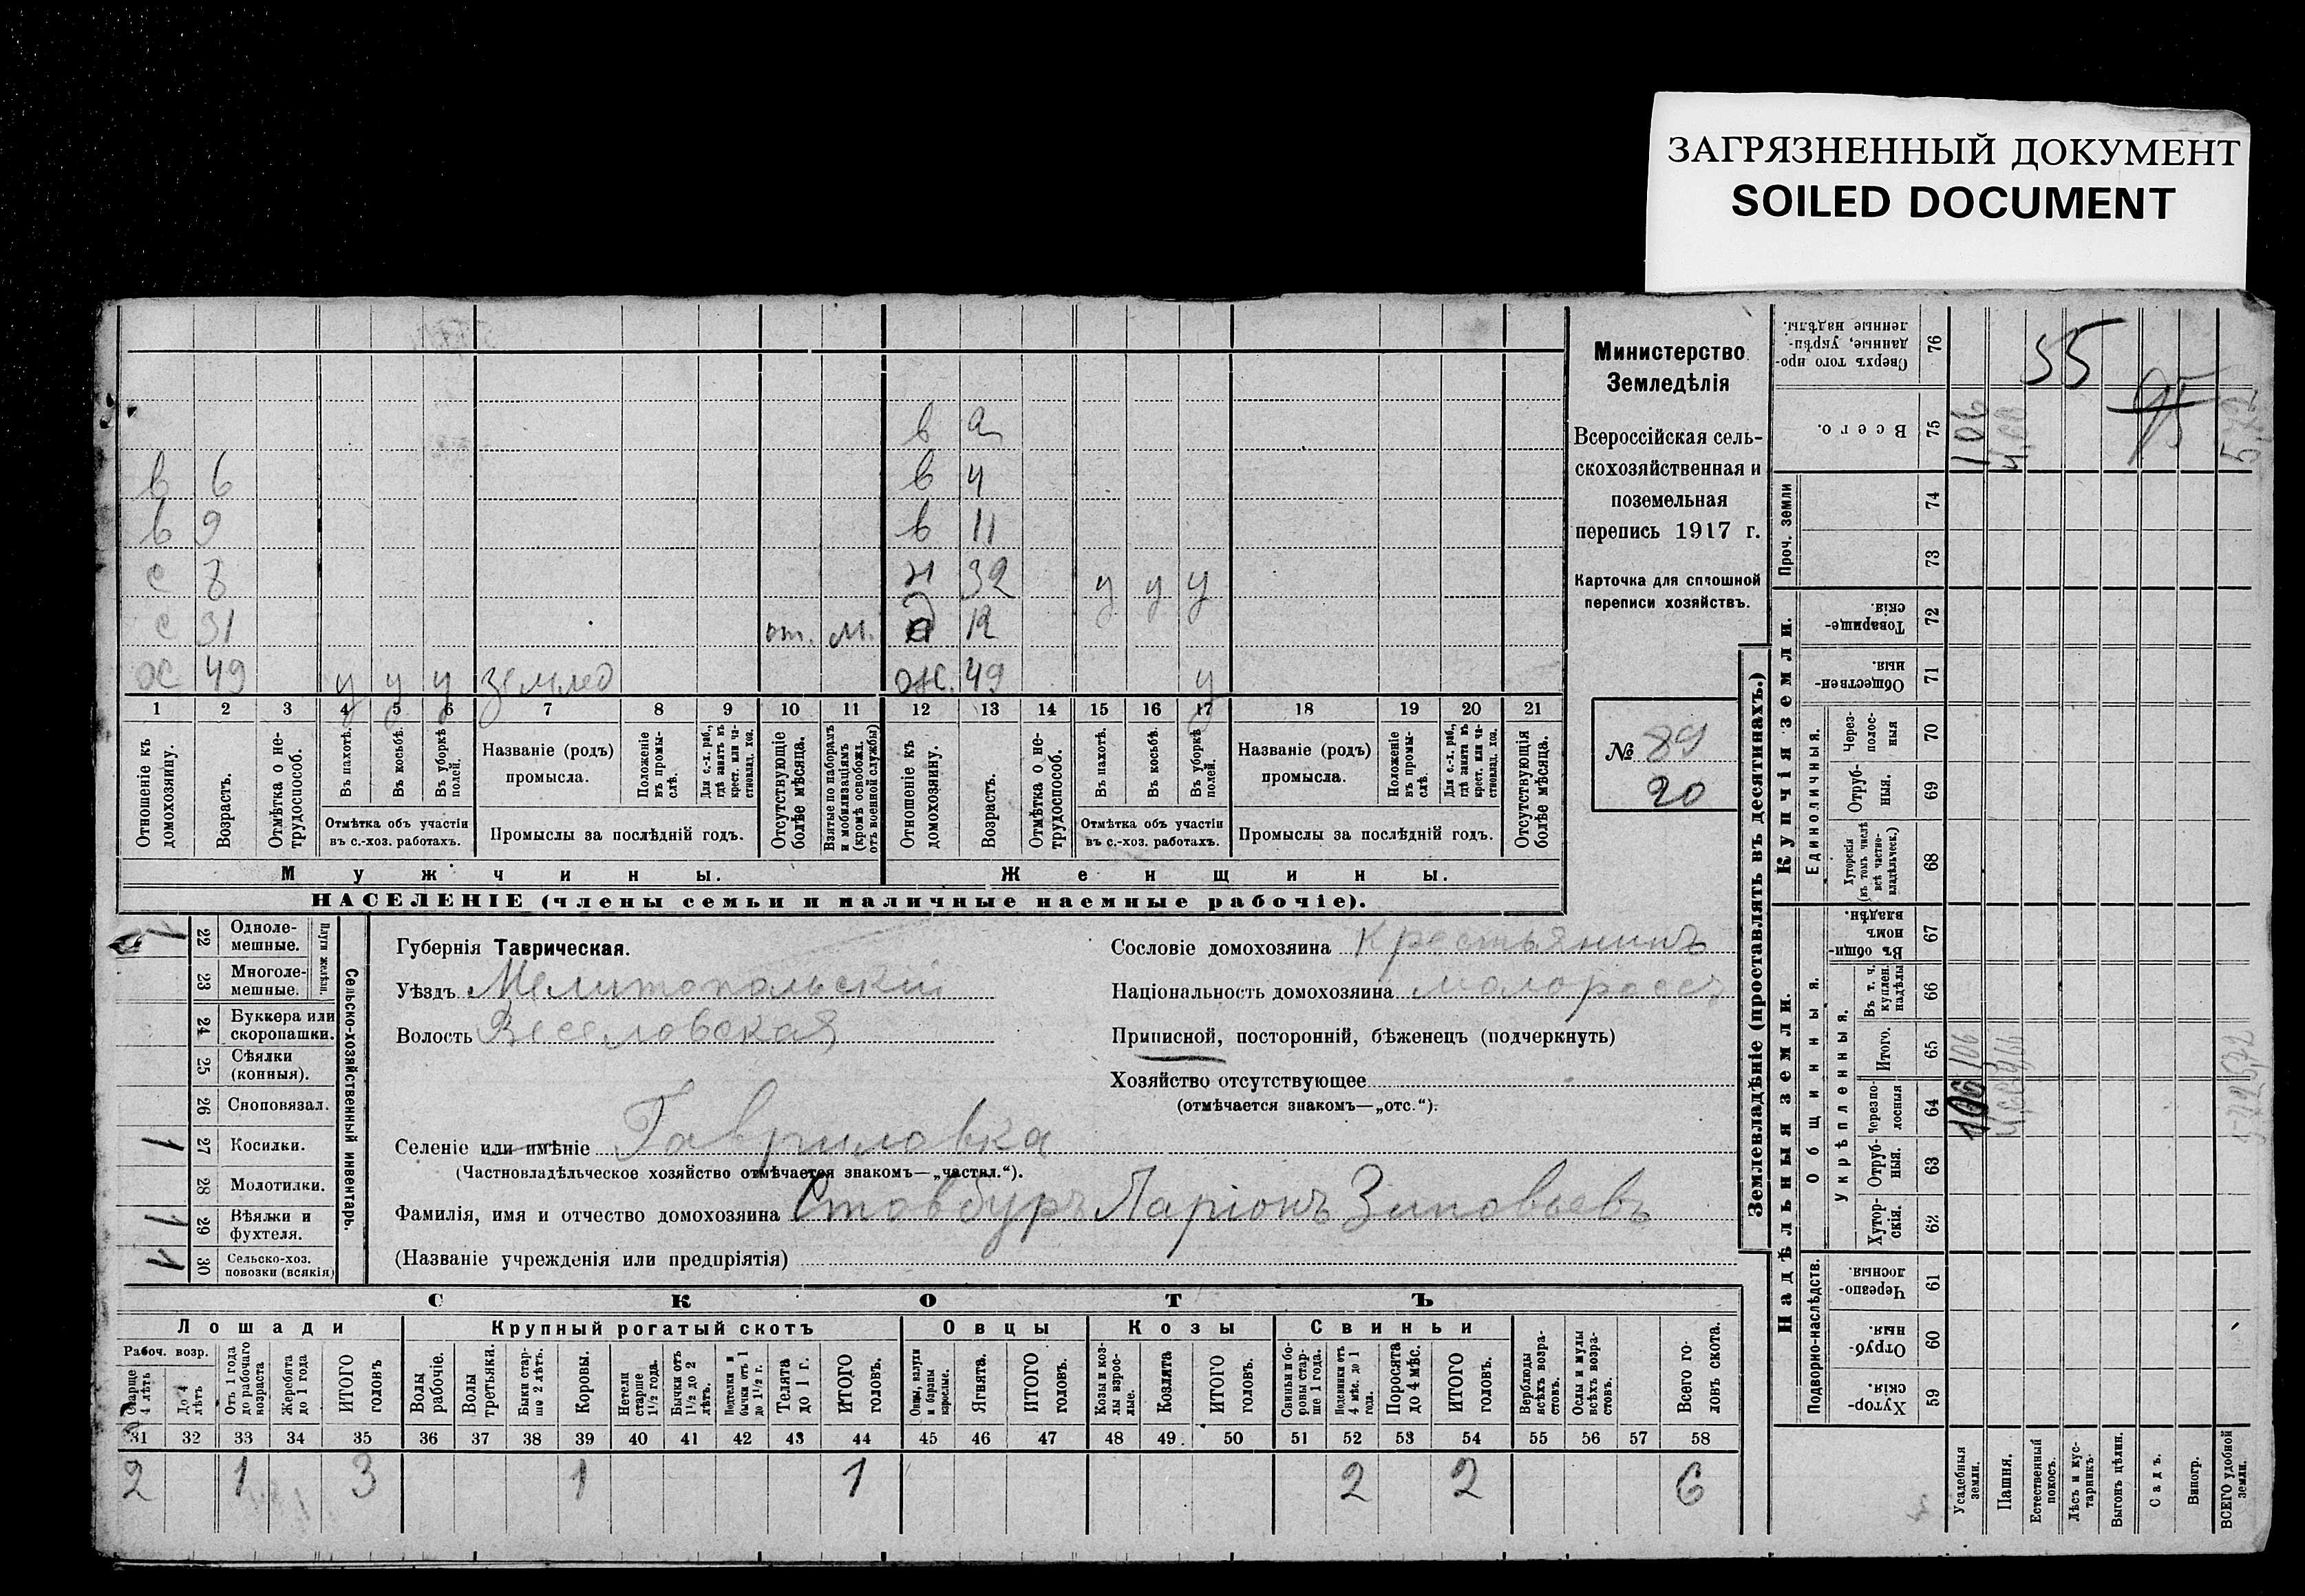 ЗАГРЯЗНЕННЫЙ ДОКУМЕНТ
SOILED DOCUMENT
в 2
в 6 в 4
в 9 в 11
с 8 н 32 у у у
с 31 от. м. д 12
ох 49 у у у землед ож. 49 у
1 2 3 4 5 6 7 8 9 10 11 12 13 14 15 16 17 18 19 20 21
Отношеніе къ домохозяину.
Возрастъ.
Отмѣтка о не-трудоспособ.
Въ пахотѣ.
Въ косьбѣ.
Въ уборкѣ полей.
Отмѣтка объ участіи
въ с.-хоз. работахъ.
Названіе (родъ)
промысла.
Положеніе въ промы-слѣ.
Для с.-х. раб., гдѣ занятъ въ крест. или ча-стновлад. хоз.
Промыслы за послѣдній годъ.
Отсутствующіе болѣе мѣсяца.
Взятые по наборамъ и мобилизаціямъ (кромѣ освобожд. отъ военной службы)
Отношеніе къ домохозяину.
Возрастъ.
Отмѣтка о не-трудоспособ.
Въ пахотѣ.
Въ косьбѣ.
Въ уборкѣ полей.
Отмѣтка объ участіи
въ с.-хоз. работахъ.
Названіе (родъ)
промысла.
Положеніе въ промы-слѣ.
Для с.-х. раб., гдѣ занята въ крест. или ча-стновлад. хоз.
Промыслы за послѣдній годъ.
Отсутствующія болѣе мѣсяца.
Мужчины. Женщины.
НАСЕЛЕНІЕ (члены семьи и наличные наемные рабочіе).
Министерство
Земледѣлія
Всероссійская сель-
скохозяйственная и
поземельная
перепись 1917 г.
Карточка для сплошной
переписи хозяйствъ.
№ 89
20
Сельско-хозяйственный инвентарь.
Плуги желѣзн.
22 Одноле-мешные. 1
23 Многоле-мешные.
24 Буккера или скоропашки.
25 Сѣялки (конныя).
26 Сноповязал.
27 Косилки. 1
28 Молотилки.
29 Вѣялки и фухтеля. 1
30 Сельско-хоз. повозки (всякія) 1
Губернія Таврическая.
Уѣздъ Мелитопольскій
Волость Веселовская
Селеніе или имѣніе Гавриловка
(Частновладѣльческое хозяйство отмѣчается знакомъ—„частвл.“).
Фамилія, имя и отчество домохозяина Стовбуръ Ларіонъ Зиновьевъ
(Названіе учрежденія или предпріятія)
Сословіе домохозяина Крестьянинъ
Національность домохозяина малороссъ
Приписной, посторонній, бѣженецъ (подчеркнуть)
Хозяйство отсутствующее
(отмѣчается знакомъ—„отс.“).
СКОТЪ
Лошади Крупный рогатый скотъ Овцы Козы Свиньи
Рабоч. возр.
Старше 4 лѣтъ
До 4 лѣтъ
Отъ 1 года до рабочаго возраста
Жеребята до 1 года
ИТОГО головъ
Волы рабочіе.
Волы третьяки.
Быки стар-ше 2 лѣтъ.
Коровы.
Нетели старше 1½ года.
Бычки отъ 1½ до 2 лѣтъ.
Подтелки и бычки отъ 1 до 1½ г.
Телята до 1 г.
ИТОГО головъ.
Овцы, валухи и бараны взрослые.
Ягнята.
ИТОГО головъ.
Козы и коз-лы взрос-лые.
Козлята
ИТОГО головъ.
Свиньи и бо-ровы стар-ше 1 года.
Подсвинки отъ 4 мѣс. до 1 года.
Поросята до 4 мѣс.
ИТОГО головъ.
Верблюды всѣхъ возра-стовъ.
Ослы и мулы всѣхъ возра-стовъ.
Всего го-ловъ скота.
31 32 33 34 35 36 37 38 39 40 41 42 43 44 45 46 47 48 49 50 51 52 53 54 55 56 57 58
2 1 3 1 1 2 2 6
Землевладѣніе (проставлять въ десятинахъ.)
Купчія земли.
Надѣльныя земли.
Сверхъ того про-данные, укрѣп-ленные надѣлы. 76
Всего. 75
Проч. земли 74 73
Товарище-скія. 72
Обществен-ныя. 71
Единоличныя.
Через-полос-ныя 70
Отруб-ныя. 69
Хуторскія (въ томъ числѣ всѣ частно-владѣльческ.) 68
Общинныя.
Въ общин-номъ владѣн. 67
Укрѣпленныя.
Въ т. ч. куплен. надѣлы 66
Итого. 65
Черезпо-лосныя 64
Отруб-ныя. 63
Хутор-скія. 62
Подворно-наслѣдств.
Черезпо-лосныя. 61
Отруб-ныя. 60
Хутор-скія 59
Усадебныя земли.
Пашня.
Естественный покосъ.
Лѣсъ и кус-тарникъ.
Выгонъ цѣлин.
Садъ.
Виногр.
ВСЕГО удобной земли.
55
95
106
5,72
106